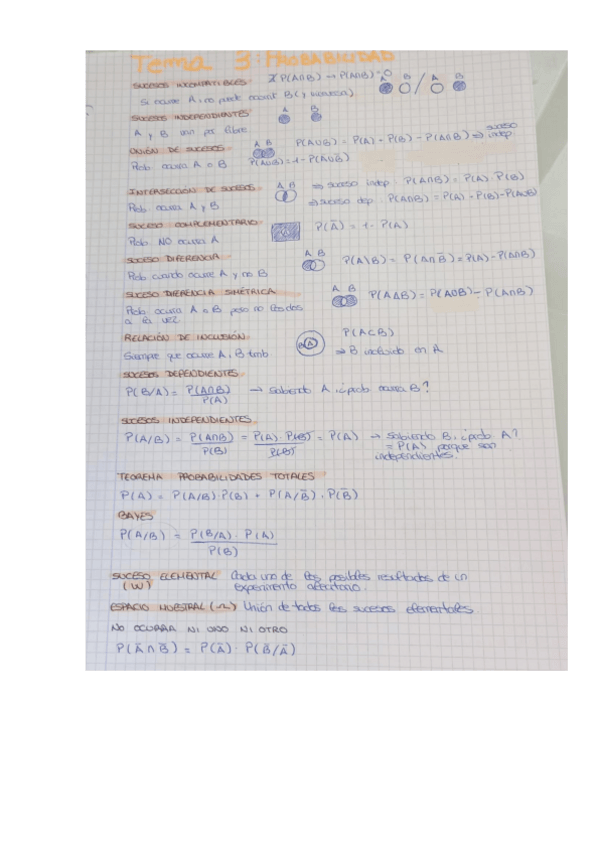 Tema 3: PROBABILIDAD
SUCESOS INCOMPATIBLES P(A∩B) → P(A∩B)=0 A B / A B
Si ocurre A, no puede ocurrir B (y viceversa)
SUCESOS INDEPENDIENTES A B
A y B van por libre
UNIÓN DE SUCESOS A B P(A∪B) = P(A) + P(B) - P(A∩B) ⇒ suceso indep.
Prob. ocurra A o B P(A∪B)=1-P(Ā∩B̄)
INTERSECCIÓN DE SUCESOS A B ⇒ suceso indep. P(A∩B) = P(A)·P(B)
Prob. ocurra A y B ⇒ suceso dep. P(A∩B) = P(A) + P(B) - P(A∪B)
SUCESO COMPLEMENTARIO P(Ā) = 1 - P(A)
Prob. NO ocurra A
SUCESO DIFERENCIA A B P(A\B) = P(A∩B̄) = P(A) - P(A∩B)
Prob cuando ocurre A y no B
SUCESO DIFERENCIA SIMÉTRICA A B P(A∆B) = P(A∪B) - P(A∩B)
Prob ocurra A o B pero no los dos
a la vez
RELACIÓN DE INCLUSIÓN B A P(A⊂B)
Siempre que ocurre A, B tmb ⇒ B incluido en A
SUCESOS DEPENDIENTES
P(B/A) = P(A∩B)/P(A) → Sabiendo A, ¿prob ocurra B?
SUCESOS INDEPENDIENTES
P(A/B) = P(A∩B)/P(B) = P(A)·P(B)/P(B) = P(A) → Sabiendo B, ¿prob A?
= P(A) porque son
independientes.
TEOREMA PROBABILIDADES TOTALES
P(A) = P(A/B)·P(B) + P(A/B̄)·P(B̄)
BAYES
P(A/B) = P(B/A)·P(A)/P(B)
SUCESO ELEMENTAL Cada uno de los posibles resultados de un
(W) experimento aleatorio.
ESPACIO MUESTRAL (Ω) Unión de todos los sucesos elementales
NO OCURRA NI UNO NI OTRO
P(Ā∩B̄) = P(Ā)·P(B̄/Ā)